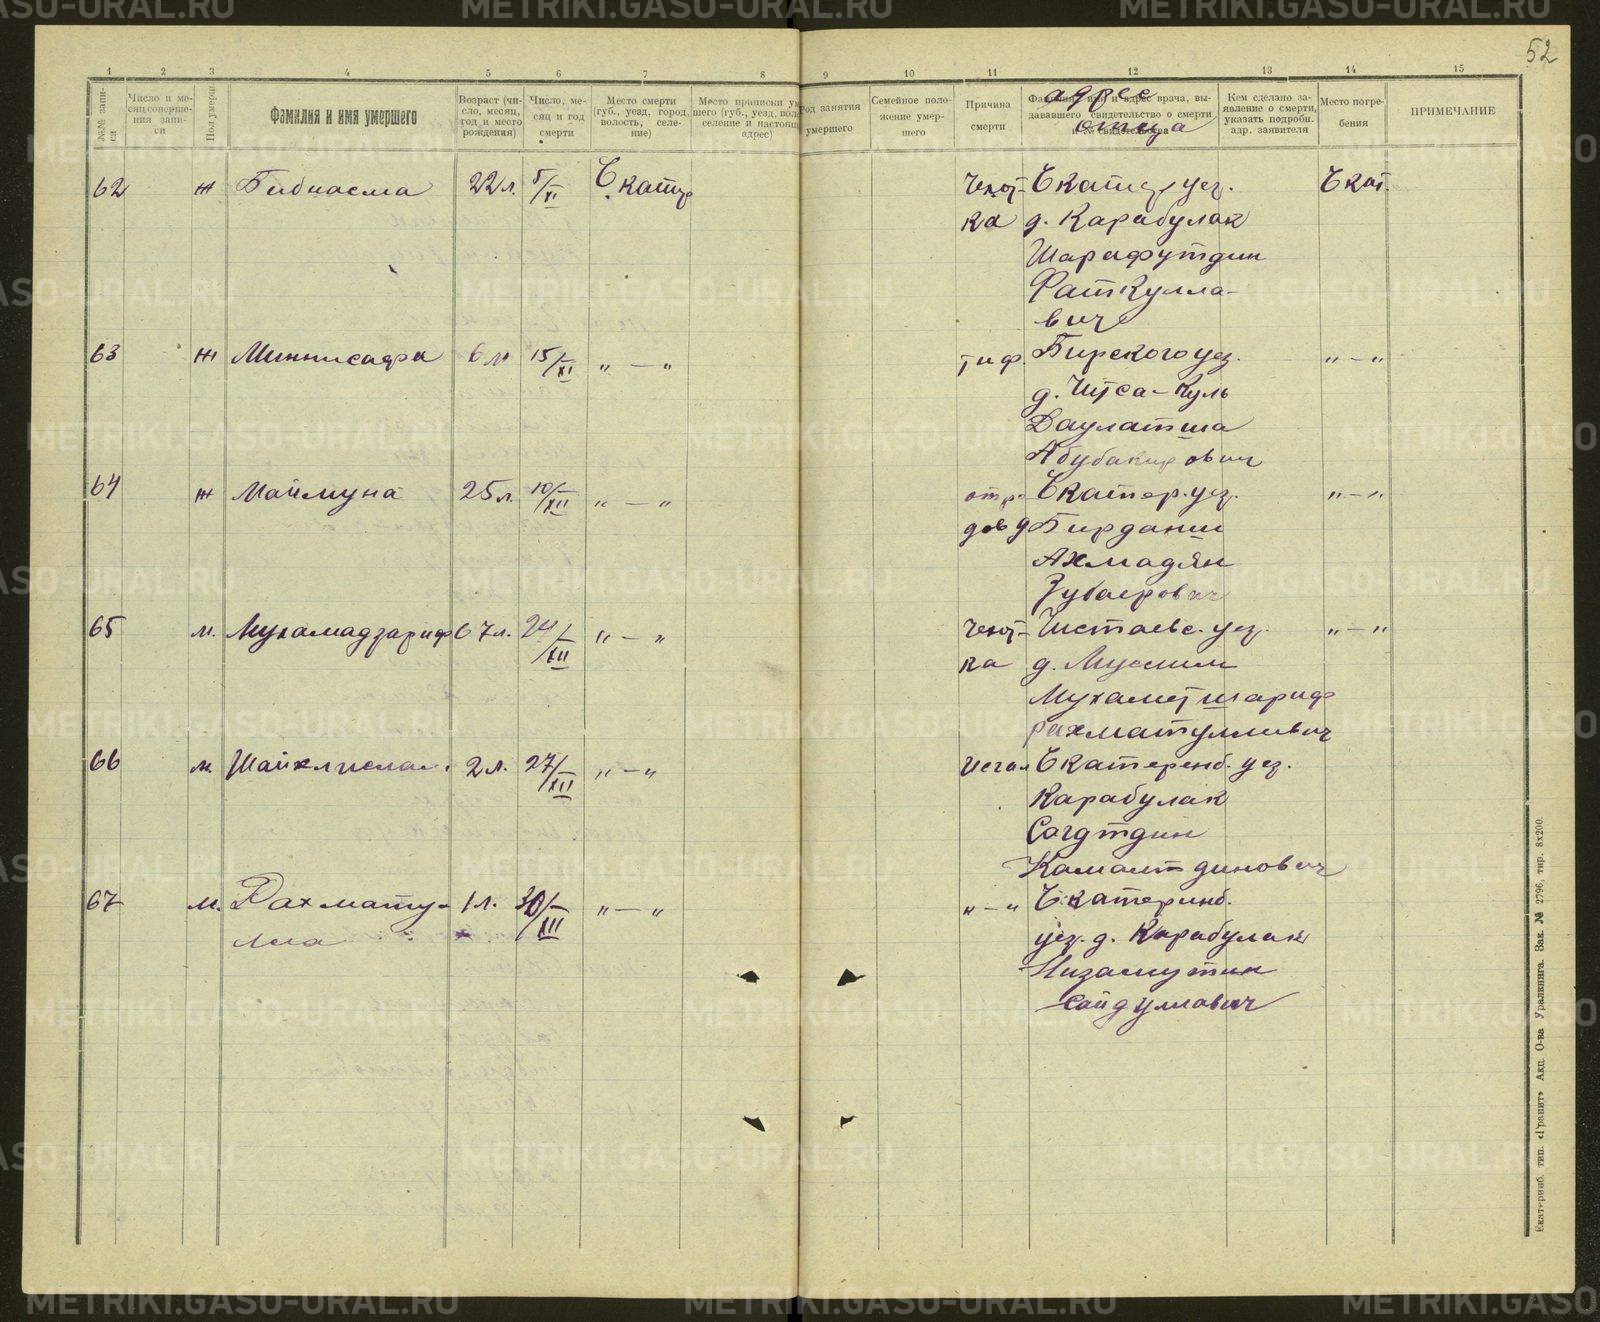 52
1 2 3 4 5 6 7 8 9 10 11 12 13 14 15
№№ записи
Число и месяц совершения записи
Пол умерш
Фамилия и имя умершего
Возраст (число, месяц, год и место рождения)
Число, месяц и год смерти
Место смерти (губ., уезд, город, волость, селение)
Место приписки умершего (губ., уезд, вол., селение и настоящ. адрес)
Род занятия умершего
Семейное положение умершего
Причина смерти
Фамилия, имя и адрес врача, выдававшего свидетельство о смерти № свидетельства
адрес
отца
Кем сделано заявление о смерти, указать подробн. адр. заявителя
Место погребения
ПРИМЕЧАНИЕ
62 ж Бибиасма 22 л. 5/XI Екатер Чехот- Екатер уез. Екат.
ка д. Карабулак
Шарафутдин
Фаткулла-
вич
63 ж Миннисафа 6 м 15/XI „ — „ тиф. Бирского уез. „ — „
д. Утса-Куль
Даулатша
Абубакирович
64 ж Маймуна 25 л. 10/XII „ — „ отр. Екатер. уез. „ — „
дов д Бирдании
Ахмадян
Зубаерович
65 м. Мухамадзариф 67 л. 24/XII „ — „ Чехот- Чистаевс. уез. „ — „
ка д. Муслим
Мухаметшариф
Рахматуллович
66 м. Шайхлислам. 2 л. 27/XII „ — „ Екатеренб. уез.
Карабулак
Сагдтдин
Камалтдинович
67 м. Рахмату- 1 л. 30/XII „ — „ „ — „ Екатеринб.
лла уез. д. Карабулак
Низамутин
Сайдуллович
Екатеринб. тип. «Гранит» Акц. О-ва Уралкнига. Зак. № 2796, тир. 8х200.
METRIKI.GASO-URAL.RU